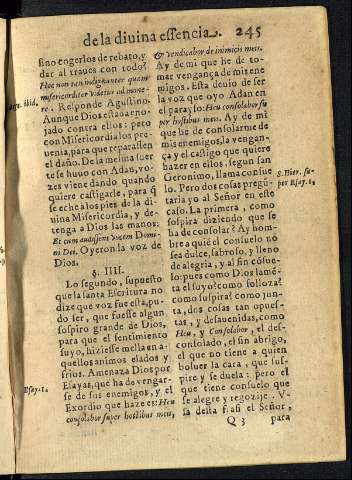 de la diuina essencia. 245
sino engerlos de rebato, y
dar al traues con todo?
Hoc non tam indignanter quam
misericorditer videtur admone-
re. Responde Agustino.
Aunque Dios estaua eno-
jado contra ellos: pero
con Misericordia los pre-
uenia, para que reparassen
el daño. De la mesma suer
te se huuo con Adan, vo-
zes viene dando quando
quiere castigarle, para q̃
se eche a los pies de la di-
uina Misericordia, y de-
tenga a Dios las manos:
Et cum audissent vocem Domi-
ni Dei. Oyeron la voz de
Dios.
§. IIII.
Lo segundo, supuesto
que la santa Escritura no
dize que voz fue esta, pu-
do ser, que fuesse algun
sospiro grande de Dios,
para que el sentimiento
suyo, hiziesse mella en a-
quellos animos elados y
frios. Amenaza Dios por
Esayas, que ha de vengar-
se de sus enemigos, y el
Exordio que haze es: Heu
consolabor super hostibus meis,
Aug. ibid.
Esay. 1.
& vendicabor de inimicis meis.
Ay de mi que he de to-
mar vengança de mis ene
migos. Esta deuio de ser
la voz que oyo Adan en
el parayso: Heu consolabor su
per hostibus meis. Ay de mi
que he de consolarme de
mis enemigos, la vengan-
ça y el castigo que quiere
hazer en ellos, segun san
Geronimo, llama consue
lo. Pero dos cosas pregũ-
taria yo al Señor en este
caso. La primera, como
sospira diziendo que se
ha de consolar? Ay hom-
bre a quiẽ el consuelo no
sea dulce, sabroso, y lleno
de alegria, y al fin cõsue-
lo: pues como Dios lamẽ-
ta el suyo? como solloza?
como suspira? como jun-
ta, dos cosas tan opues-
tas, y desauenidas, como
Heu, y Consolabor, el des-
consolado, el sin abrigo,
el que no tiene a quien
boluer la cara, que sus-
pire y se duela: pero el
que tiene consuelo que
se alegre y regozije. V-
sa desta frasi el Señor,
S. Hier. su-
per Esay. 1.
Q 3 para